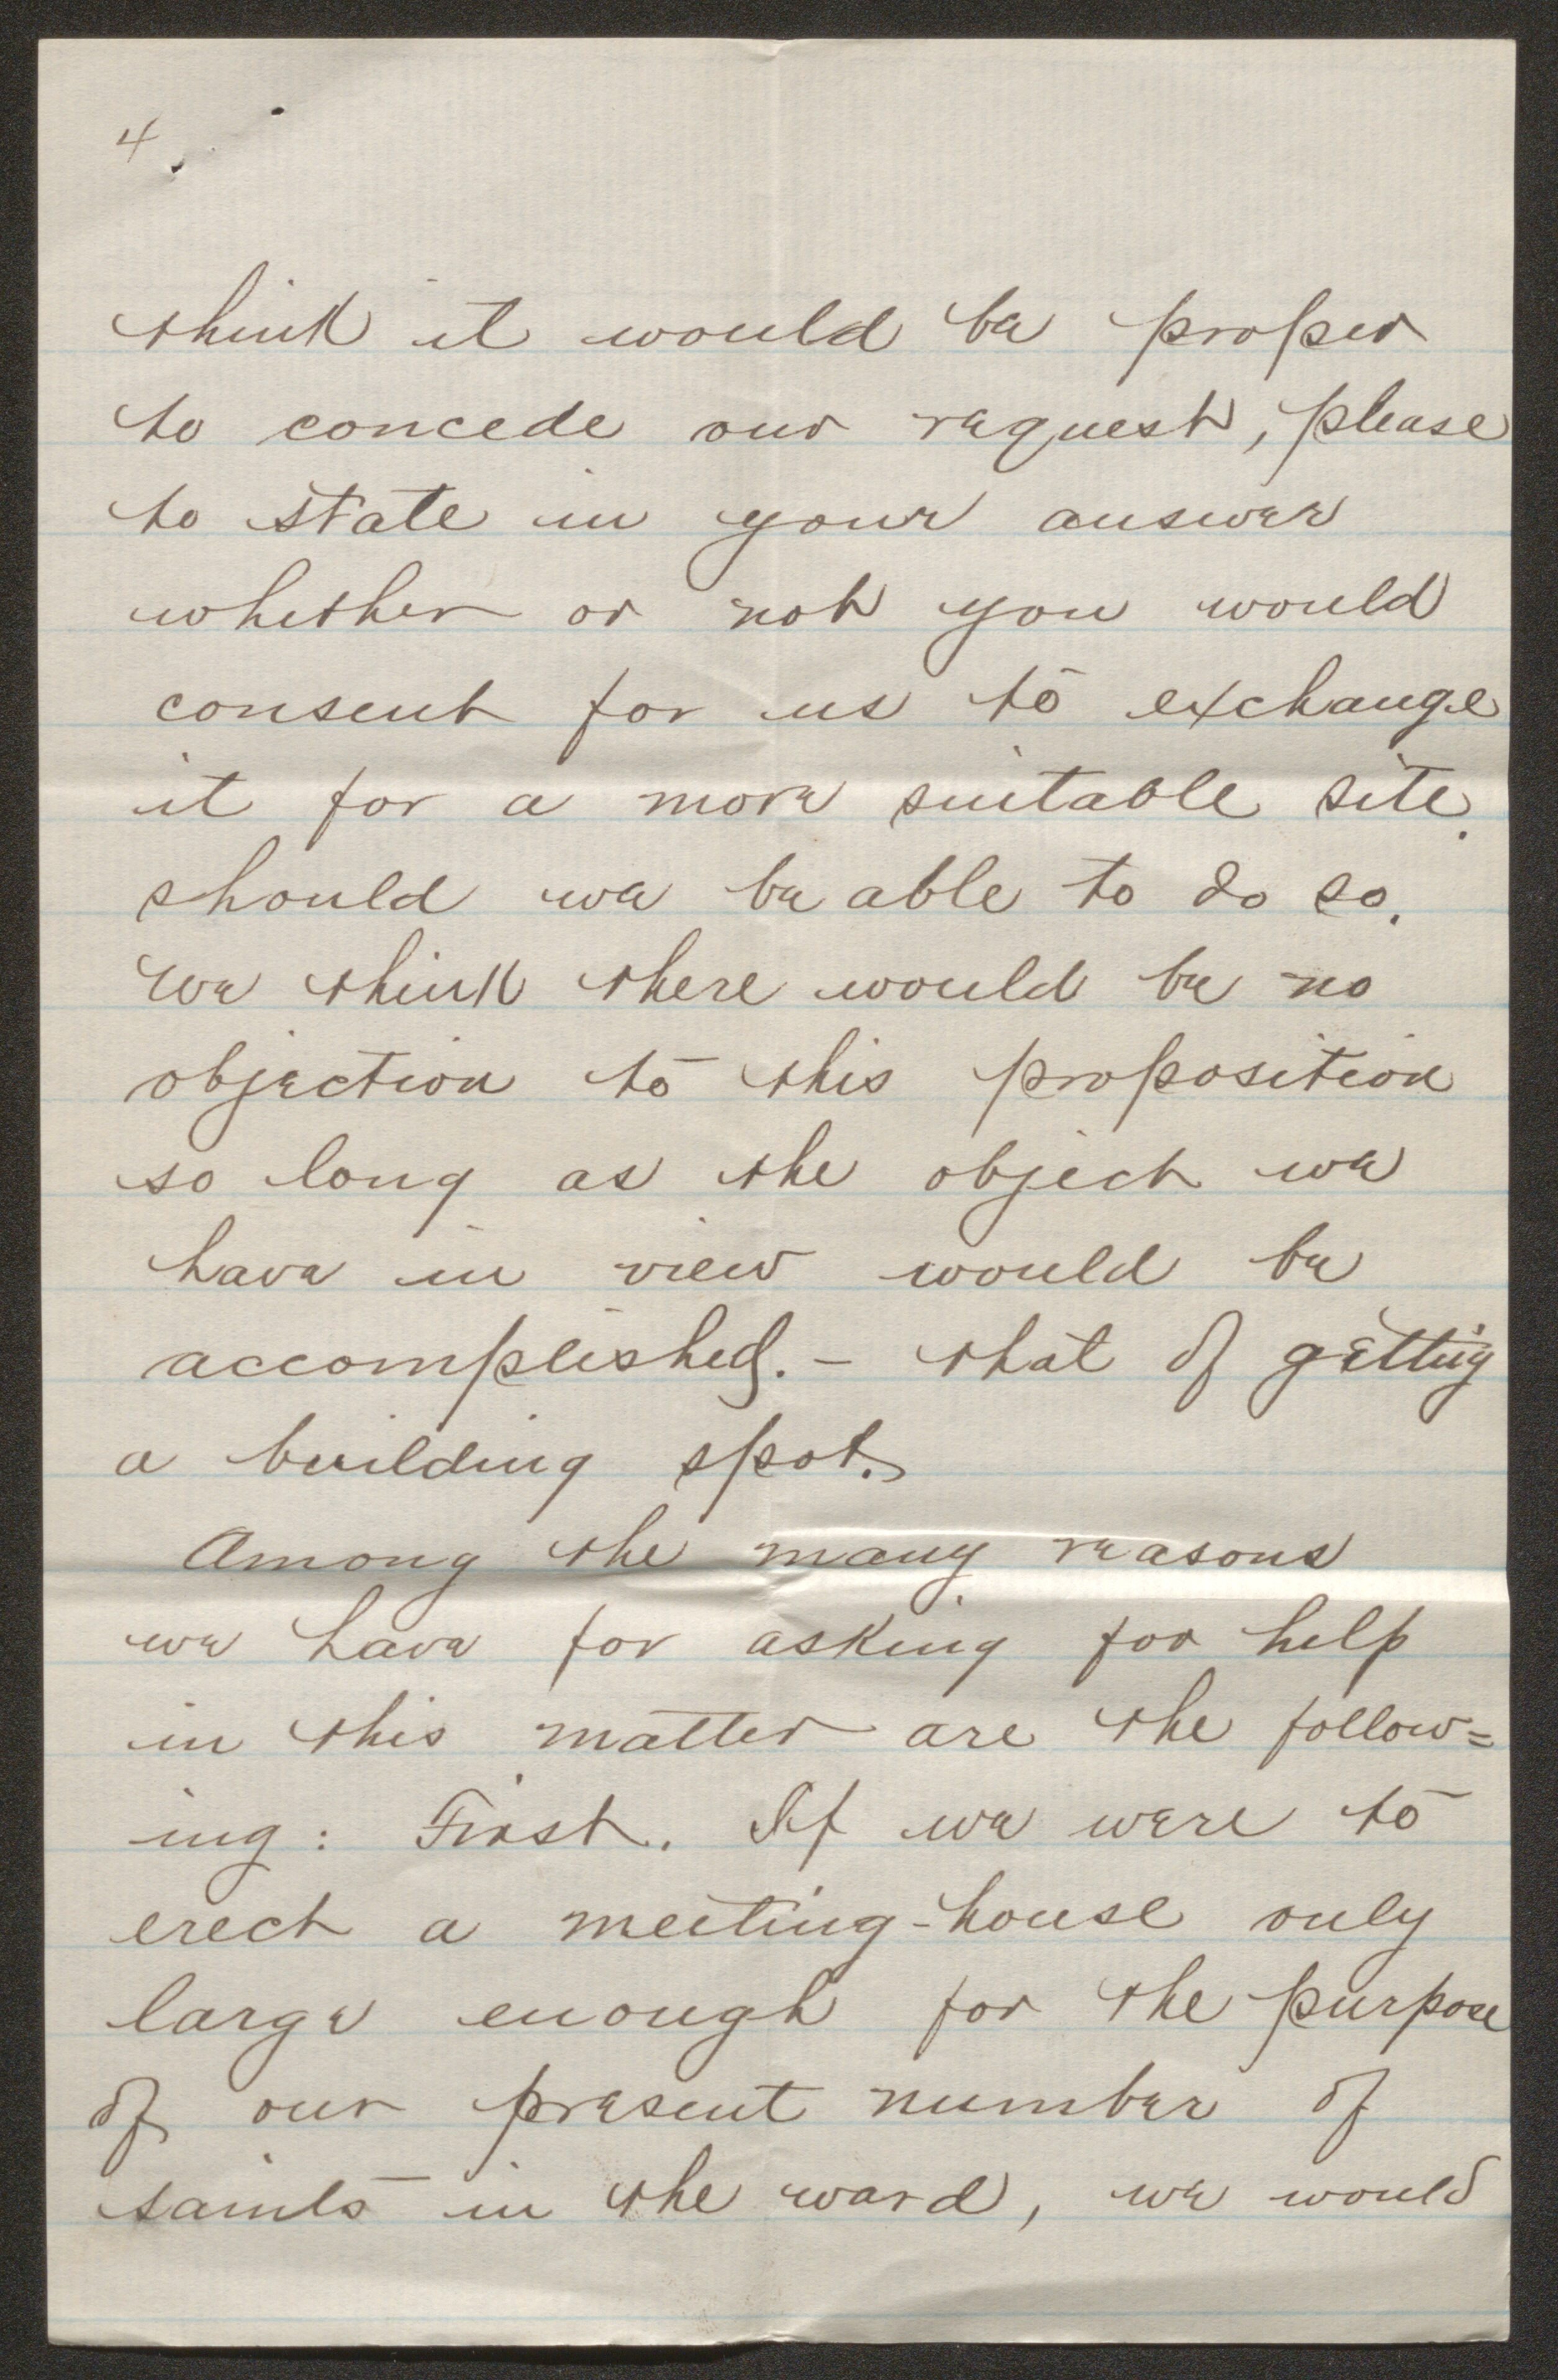 4
think it would be proper
to concede our request, please
to state in your answer
whether or not you would
consent for us to exchange
it for a more suitable site.
should we be able to do so.
we think there would be no
objection to this proposition
so long as the object we
have in view would be
accomplished. - that of getting
a building spot.
Among the many reasons
we have for asking for help
in this matter are the follow=
ing: First. If we were to
erect a meeting-house only
large enough for the purpose
of our present number of
saints in the ward, we would